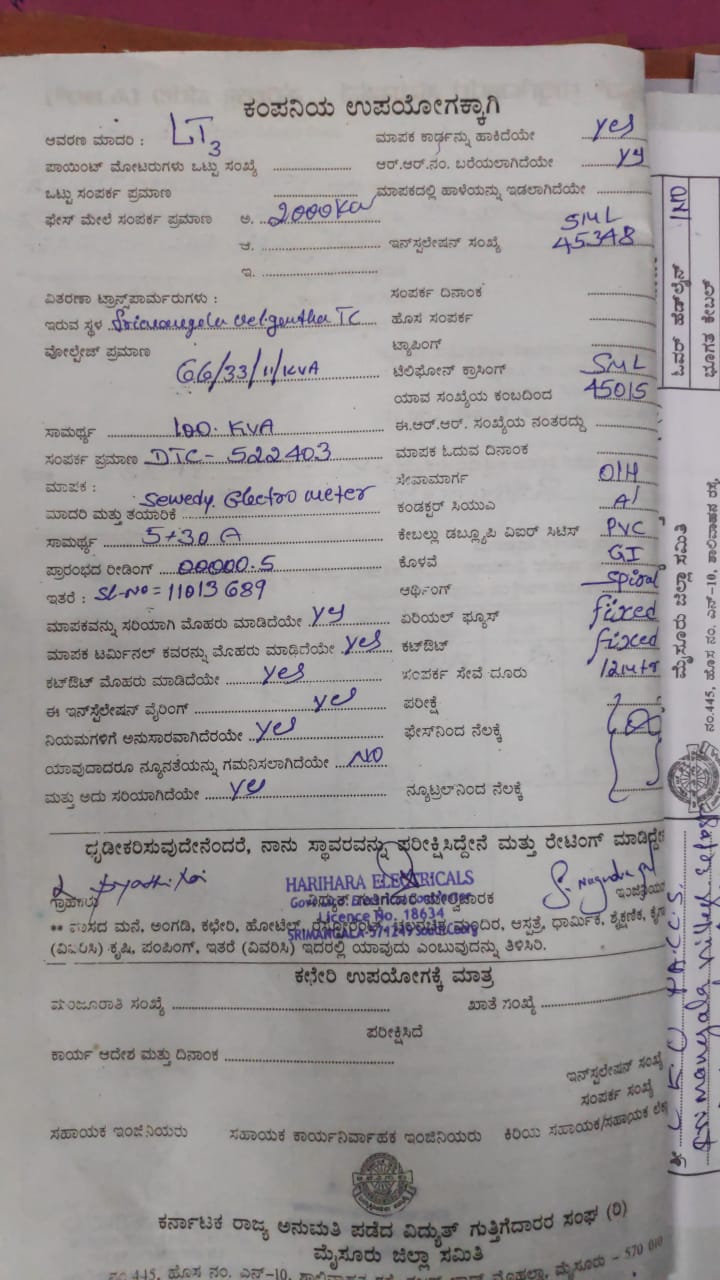 ಕಂಪನಿಯ ಉಪಯೋಗಕ್ಕಾಗಿ
ಆವರಣ ಮಾದರಿ : LT3 ಮಾಪಕ ಕಾರ್ಡನ್ನು ಹಾಕಿದೆಯೇ yes
ಪಾಯಿಂಟ್ ಮೋಟರುಗಳು ಒಟ್ಟು ಸಂಖ್ಯೆ ಆರ್.ಆರ್.ನಂ. ಬರೆಯಲಾಗಿದೆಯೇ
ಒಟ್ಟು ಸಂಪರ್ಕ ಪ್ರಮಾಣ ಮಾಪಕದಲ್ಲಿ ಹಾಳೆಯನ್ನು ಇಡಲಾಗಿದೆಯೇ
ಫೇಸ್ ಮೇಲೆ ಸಂಪರ್ಕ ಪ್ರಮಾಣ ಅ. 2000 SML
ಆ. ಇನ್‌ಸ್ಟಲೇಷನ್ ಸಂಖ್ಯೆ 45348
ಇ.
ವಿತರಣಾ ಟ್ರಾನ್ಸ್‌ಪಾರ್ಮರುಗಳು : ಸಂಪರ್ಕ ದಿನಾಂಕ
ಇರುವ ಸ್ಥಳ TC ಹೊಸ ಸಂಪರ್ಕ
ವೋಲ್ಟೇಜ್ ಪ್ರಮಾಣ ಟ್ಯಾಪಿಂಗ್
66/33/11/KVA ಟೆಲಿಫೋನ್ ಕ್ರಾಸಿಂಗ್ SML
ಯಾವ ಸಂಖ್ಯೆಯ ಕಂಬದಿಂದ 45015
ಸಾಮರ್ಥ್ಯ 100. KVA ಈ.ಆರ್.ಆರ್. ಸಂಖ್ಯೆಯ ನಂತರದ್ದು
ಸಂಪರ್ಕ ಪ್ರಮಾಣ DTC - 522403 ಮಾಪಕ ಓದುವ ದಿನಾಂಕ
ಮಾಪಕ : ಸೇವಾಮಾರ್ಗ O/H
ಮಾದರಿ ಮತ್ತು ತಯಾರಿಕೆ Electro meter ಕಂಡಕ್ಟರ್ ಸಿಯುಎ Al
ಸಾಮರ್ಥ್ಯ 5+30 A ಕೇಬಲ್ಲು ಡಬ್ಲ್ಯೂಪಿ ವಿಐರ್ ಸಿಟಿಸ್ PVC
ಪ್ರಾರಂಭದ ರೀಡಿಂಗ್ 00000.5 ಕೊಳವೆ GI
ಇತರೆ : Sl-No = 11013689 ಆರ್ಥಿಂಗ್ Spiral
ಮಾಪಕವನ್ನು ಸರಿಯಾಗಿ ಮೊಹರು ಮಾಡಿದೆಯೇ ಏರಿಯಲ್ ಫ್ಯೂಸ್ fixed
ಮಾಪಕ ಟರ್ಮಿನಲ್ ಕವರನ್ನು ಮೊಹರು ಮಾಡಿದೆಯೇ yes ಕಟ್‌ಔಟ್ fixed
ಕಟ್‌ಔಟ್ ಮೊಹರು ಮಾಡಿದೆಯೇ yes ಸಂಪರ್ಕ ಸೇವೆ ದೂರು 12Mtr
ಈ ಇನ್‌ಸ್ಟೆಲೇಷನ್ ವೈರಿಂಗ್ yes ಪರೀಕ್ಷೆ
ನಿಯಮಗಳಿಗೆ ಅನುಸಾರವಾಗಿದೆರಯೇ yes ಫೇಸ್‌ನಿಂದ ನೆಲಕ್ಕೆ
ಯಾವುದಾದರೂ ನ್ಯೂನತೆಯನ್ನು ಗಮನಿಸಲಾಗಿದೆಯೇ NO
ಮತ್ತು ಅದು ಸರಿಯಾಗಿದೆಯೇ yes ನ್ಯೂಟ್ರಲ್‌ನಿಂದ ನೆಲಕ್ಕೆ
ಧೃಡೀಕರಿಸುವುದೇನೆಂದರೆ, ನಾನು ಸ್ಥಾವರವನ್ನು ಪರೀಕ್ಷಿಸಿದ್ದೇನೆ ಮತ್ತು ರೇಟಿಂಗ್ ಮಾಡಿದ್ದೇ
HARIHARA ELECTRICALS
ಗ್ರಾಹಕರು
Licence No. 18634
SRIMANGALA-571249
** ವಾಸದ ಮನೆ, ಅಂಗಡಿ, ಕಛೇರಿ, ಹೋಟೆಲ್, ಮಂದಿರ, ಆಸ್ಪತ್ರೆ, ಧಾರ್ಮಿಕ, ಶೈಕ್ಷಣಿಕ,
(ವಿವರಿಸಿ) ಕೃಷಿ, ಪಂಪಿಂಗ್, ಇತರೆ (ವಿವರಿಸಿ) ಇದರಲ್ಲಿ ಯಾವುದು ಎಂಬುವುದನ್ನು ತಿಳಿಸಿರಿ.
ಕಛೇರಿ ಉಪಯೋಗಕ್ಕೆ ಮಾತ್ರ
ಮಂಜೂರಾತಿ ಸಂಖ್ಯೆ ಖಾತೆ ಸಂಖ್ಯೆ
ಪರೀಕ್ಷಿಸಿದೆ
ಕಾರ್ಯ ಆದೇಶ ಮತ್ತು ದಿನಾಂಕ
ಇನ್‌ಸ್ಟಲೇಷನ್ ಸಂಖ್ಯೆ
ಸಂಪರ್ಕ ಸಂಖ್ಯೆ
ಸಹಾಯಕ ಇಂಜಿನಿಯರು ಸಹಾಯಕ ಕಾರ್ಯನಿರ್ವಾಹಕ ಇಂಜಿನಿಯರು ಕಿರಿಯ ಸಹಾಯಕ/ಸಹಾಯಕ
ಕರ್ನಾಟಕ ರಾಜ್ಯ ಅನುಮತಿ ಪಡೆದ ವಿದ್ಯುತ್ ಗುತ್ತಿಗೆದಾರರ ಸಂಘ (ರಿ)
ಮೈಸೂರು ಜಿಲ್ಲಾ ಸಮಿತಿ
ನಂ.445, ಹೊಸ ನಂ. ಎನ್-10, ಮೈಸೂರು - 570 010
ಓವರ್ ಹೆಡ್‌ಲೈನ್
ಭೂಗತ ಕೇಬಲ್
ಮೈಸೂರು ಜಿಲ್ಲಾ ಸಮಿತಿ
ನಂ.445, ಹೊಸ ನಂ. ಎನ್-10, ಶಾಲಿವಾಹನ ರಸ್ತೆ